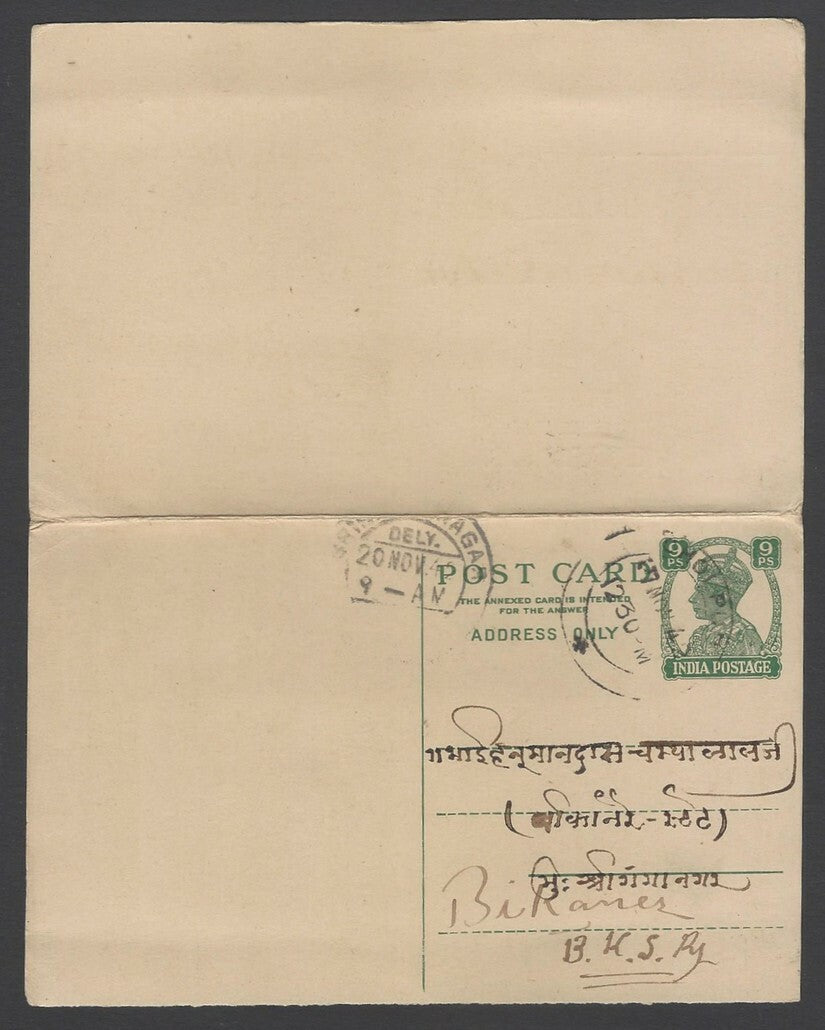 DELY.
20 NOV 4
9 — AM
POST CARD
THE ANNEXED CARD IS INTENDED
FOR THE ANSWER
ADDRESS ONLY
9 PS 9 PS
INDIA POSTAGE
भाई हनूमानदास चम्पालालजी
(बीकानेर-स्टेट)
मुः श्रीगंगानगर
Bikaner
B. K. S. Ry